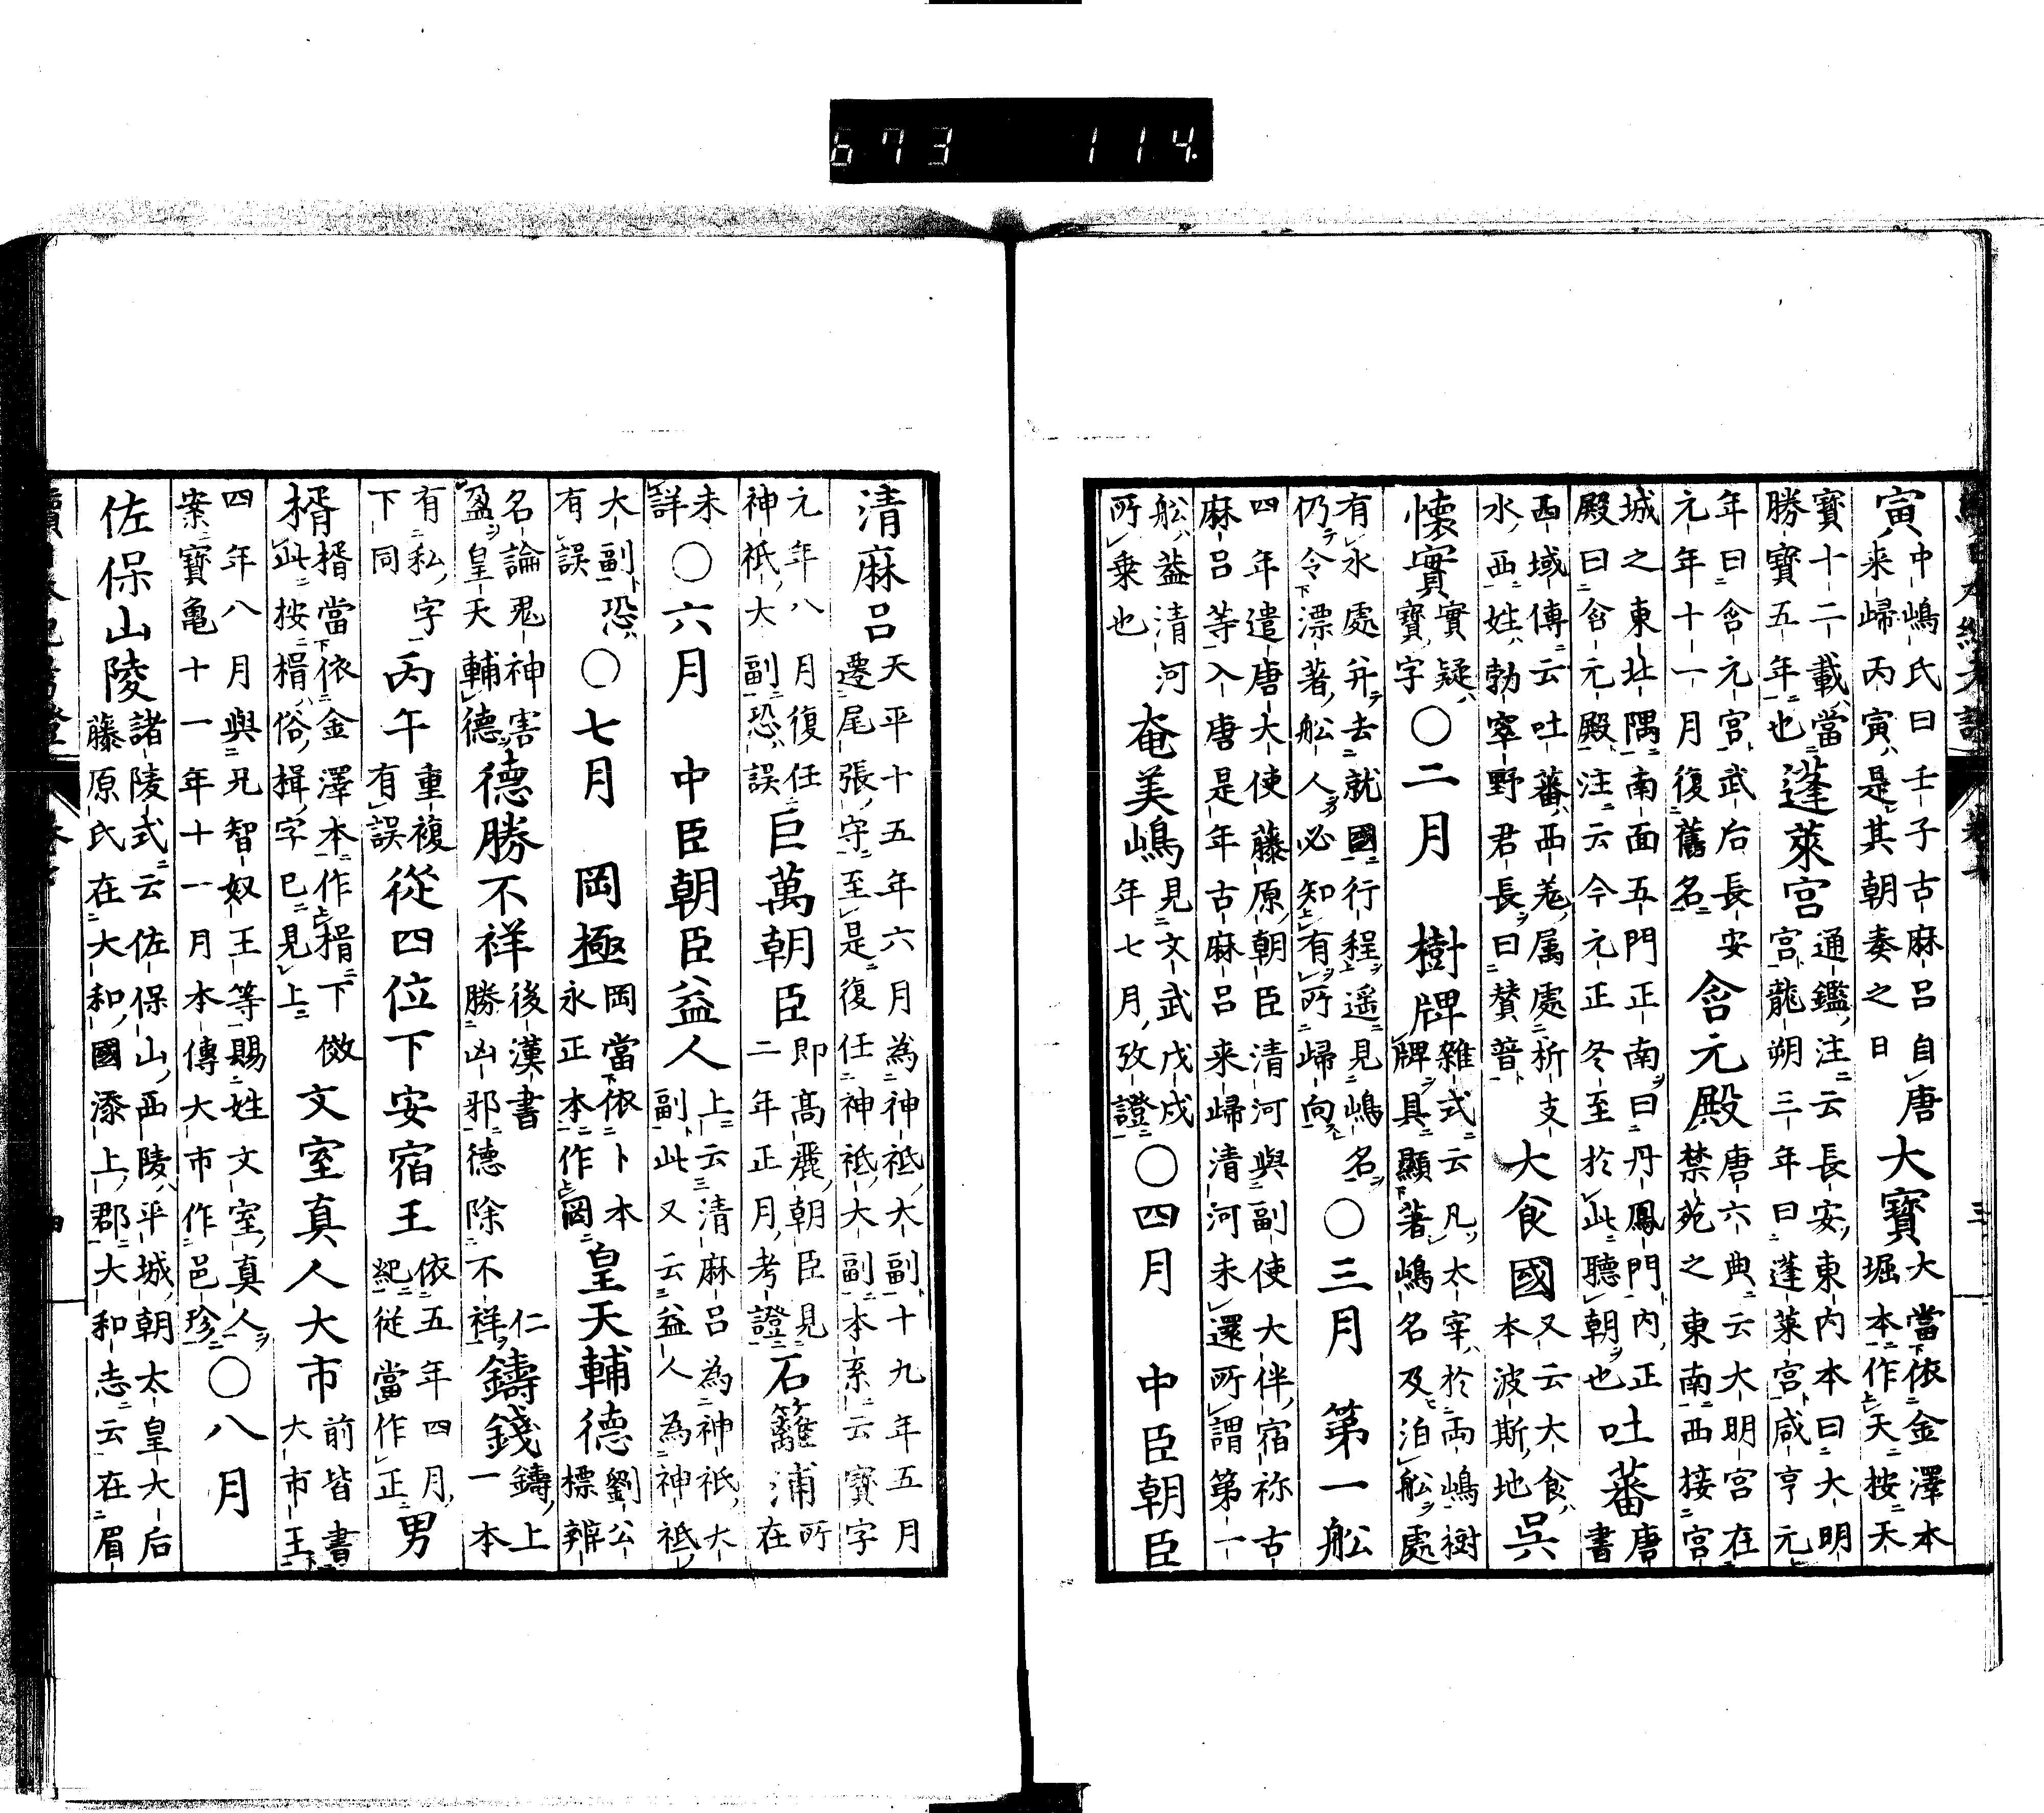 673 114.
寅 中嶋氏曰壬子古麻呂自唐
来歸丙寅是其朝奏之日 大寶 大當依金澤本
堀本作天按天
寶十二載當
勝寶五年也 蓬萊宮 通鑑注云長安東内本曰大明
宮龍朔三年曰蓬萊宮咸亨元
年曰含元宮武后長安
元年十一月復舊名 含元殿 唐六典云大明宮在
禁苑之東南西接宮
城之東北隅南面五門正南曰丹鳳門内正
殿曰含元殿注云今元正冬至於此聽朝也 吐蕃 唐
書
西域傳云吐蕃西羌属處析支
水西姓勃窣野君長曰賛普 大食國 又云大食
本波斯地 吳
懷實 實疑
寶字 〇二月 樹牌 雜式云凡太宰於両嶋樹
牌具顯著嶋名及泊舩處
有水處并去就國行程遥見嶋名
仍令漂著舩人必知有所歸向 〇三月 第一舩
四年遣唐大使藤原朝臣清河與副使大伴宿祢古
麻呂等入唐是年古麻呂来歸清河未還所謂第一
舩葢清河
所乗也 奄美嶋 見文武戊戌
年七月攷證 〇四月 中臣朝臣
清麻呂 天平十五年六月為神祇大副十九年五月
遷尾張守至是復任神祇大副本系云寶字
元年八月復任
神祇大副恐誤 巨萬朝臣 即髙麗朝臣見
二年正月考證 石籬浦 所
在
未
詳 〇六月 中臣朝臣益人 上云清麻呂為神祇大
副此又云益人為神祇
大副恐
有誤 〇七月 岡極 岡當依卜本
永正本作罔 皇天輔德 劉公
標辨
名論鬼神害
盈皇天輔德 德勝不祥 後漢書
勝凶邪德除不祥 仁 鑄錢 鑄上
一本
有私字
下同 丙午 重複
有誤 從四位下安宿王 依五年四月
紀從當作正 男
楈 楈當依金澤本作楫楫下做
此按楫俗揖字已見上 文室真人大市 前皆書
大市王
四年八月與兄智奴王等賜姓文室真人
案寶亀十一年十一月本傳大市作邑珍 〇八月
佐保山陵 諸陵式云佐保山西陵平城朝太皇大后
藤原氏在大和國添上郡大和志云在眉